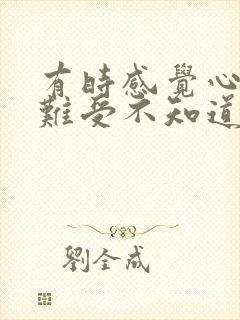 有時感覺心
難受不知道
劉全成